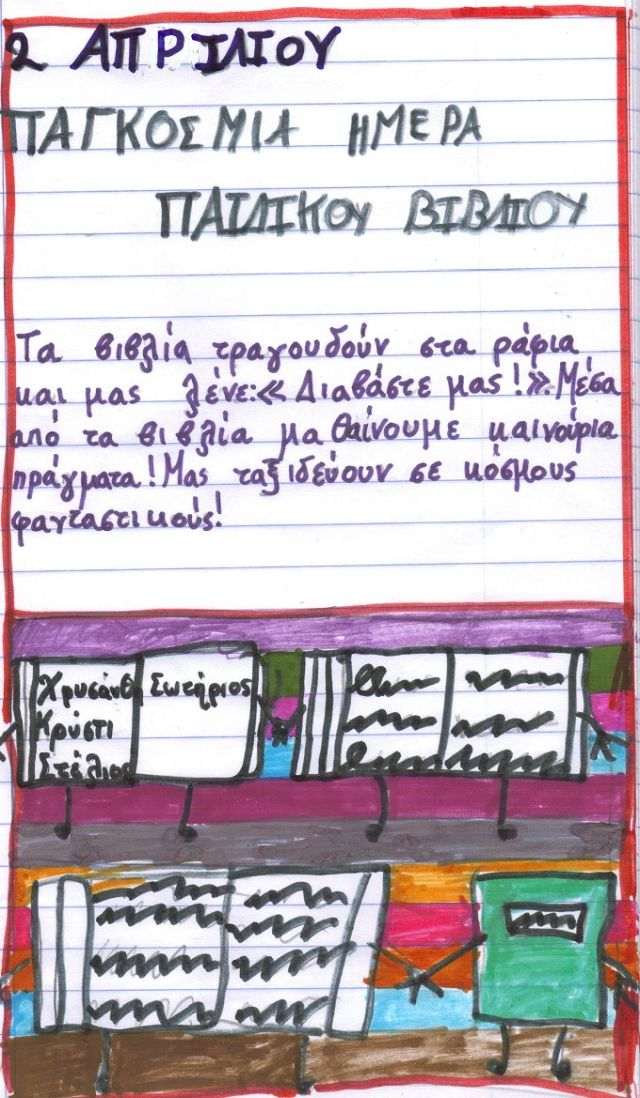 2 ΑΠΡΙΛΙΟΥ
ΠΑΓΚΟΣΜΙΑ ΗΜΕΡΑ
ΠΑΙΔΙΚΟΥ ΒΙΒΛΙΟΥ
Τα βιβλία τραγουδούν στα ράφια
και μας λένε:«Διαβάστε μας!».Μέσα
από τα βιβλία μαθαίνουμε καινούρια
πράγματα!Μας ταξιδεύουν σε κόσμους
φανταστικούς!
Χρυσάνθη
Κρύστι
Στέλιος
Σωτήριος